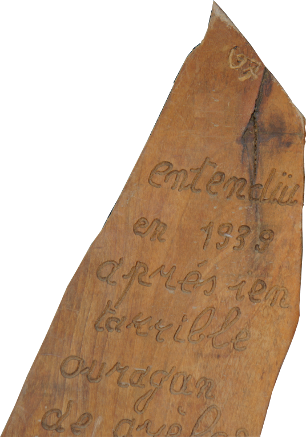 entendüe
en 1939
après un
tarrible
ouragan
de grêle